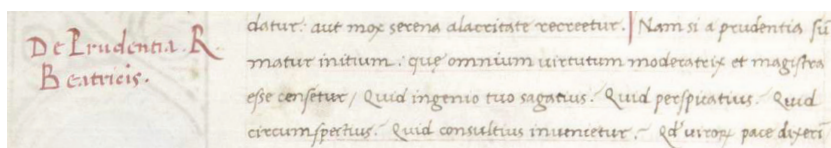 De Prudentia. R.
Beatricis.
datur: aut mox serena alacritate recreetur. Nam si a prudentia sū
matur initium: quę omnium uirtutum moderatrix et magistra
esse censetur / Quid ingenio tuo sagatius? Quid perspicatius? Quid
circumspectius? Quid consultius inuencetur? Qd' uiroꝝ pace dixerī